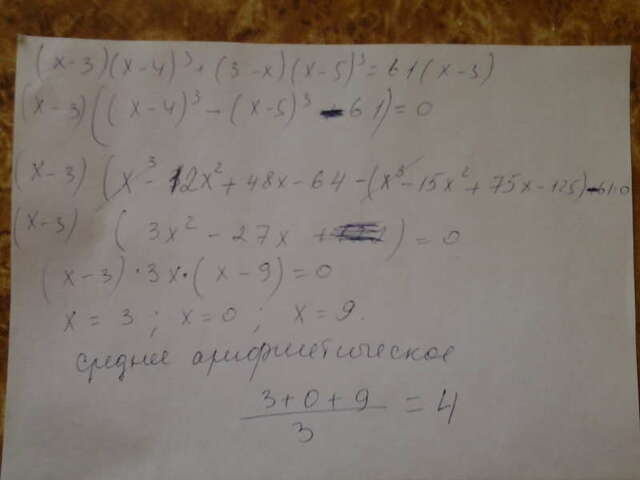 (x-3)(x-4)³+(3-x)(x-5)³=61(x-3)
(x-3)((x-4)³-(x-5)³-61)=0
(x-3)(x³-12x²+48x-64-(x³-15x²+75x-125)-61=0
(x-3)(3x²-27x)=0
(x-3)·3x·(x-9)=0
x=3; x=0; x=9.
среднее арифметическое
(3+0+9)/3=4